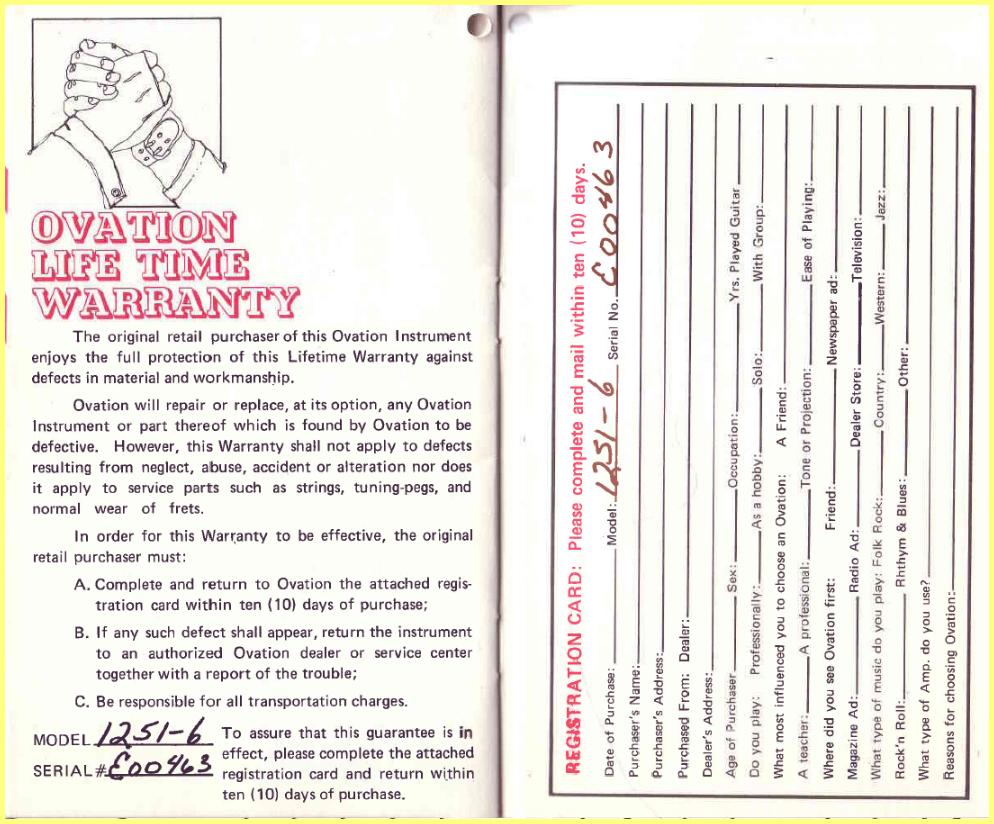 OVATION
LIFE TIME
WARRANTY
The original retail purchaser of this Ovation Instrument
enjoys the full protection of this Lifetime Warranty against
defects in material and workmanship.
Ovation will repair or replace, at its option, any Ovation
Instrument or part thereof which is found by Ovation to be
defective. However, this Warranty shall not apply to defects
resulting from neglect, abuse, accident or alteration nor does
it apply to service parts such as strings, tuning-pegs, and
normal wear of frets.
In order for this Warranty to be effective, the original
retail purchaser must:
A. Complete and return to Ovation the attached regis-
tration card within ten (10) days of purchase;
B. If any such defect shall appear, return the instrument
to an authorized Ovation dealer or service center
together with a report of the trouble;
C. Be responsible for all transportation charges.
MODEL 1251-6
SERIAL# E00463
To assure that this guarantee is in
effect, please complete the attached
registration card and return within
ten (10) days of purchase.
REGISTRATION CARD: Please complete and mail within ten (10) days.
Date of Purchase: Model: 1251-6 Serial No. E00463
Purchaser's Name:
Purchaser's Address:
Purchased From: Dealer:
Dealer's Address:
Age of Purchaser Sex: Occupation: Yrs. Played Guitar
Do you play: Professionally: As a hobby: Solo: With Group:
What most influenced you to choose an Ovation: A Friend:
A teacher: A professional: Tone or Projection: Ease of Playing:
Where did you see Ovation first: Friend: Newspaper ad:
Magazine Ad: Radio Ad: Dealer Store: Television:
What type of music do you play: Folk Rock: Country: Western: Jazz:
Rock'n Roll: Rhthym & Blues: Other:
What type of Amp. do you use?
Reasons for choosing Ovation: